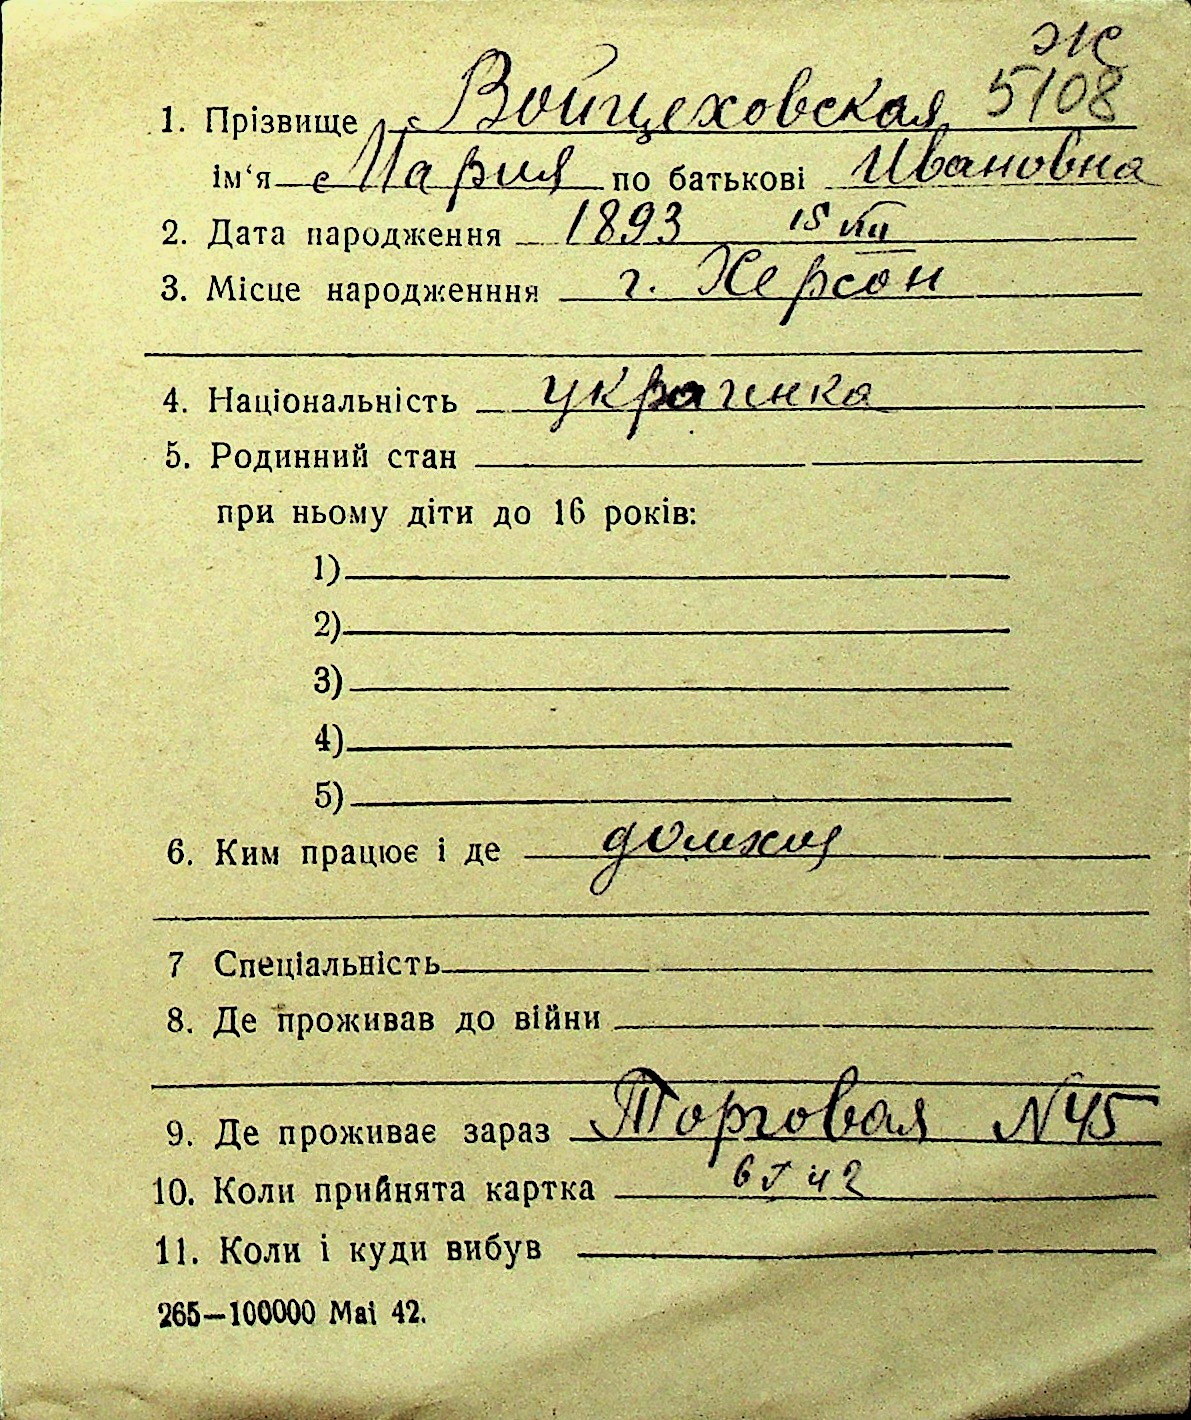 Ж
1. Прізвище Войцеховская 5108
ім‘я Мария по батькові Ивановна
2. Дата народження 1893 15 VIII
3. Місце народженння г. Херсон
4. Національність украинка
5. Родинний стан
при ньому діти до 16 років:
1)
2)
3)
4)
5)
6. Ким працює і де домхоз
7 Спеціальність
8. Де проживав до війни
9. Де проживає зараз Торговая N 45
10. Коли прийнята картка 42
11. Коли і куди вибув
265—100000 Mai 42.